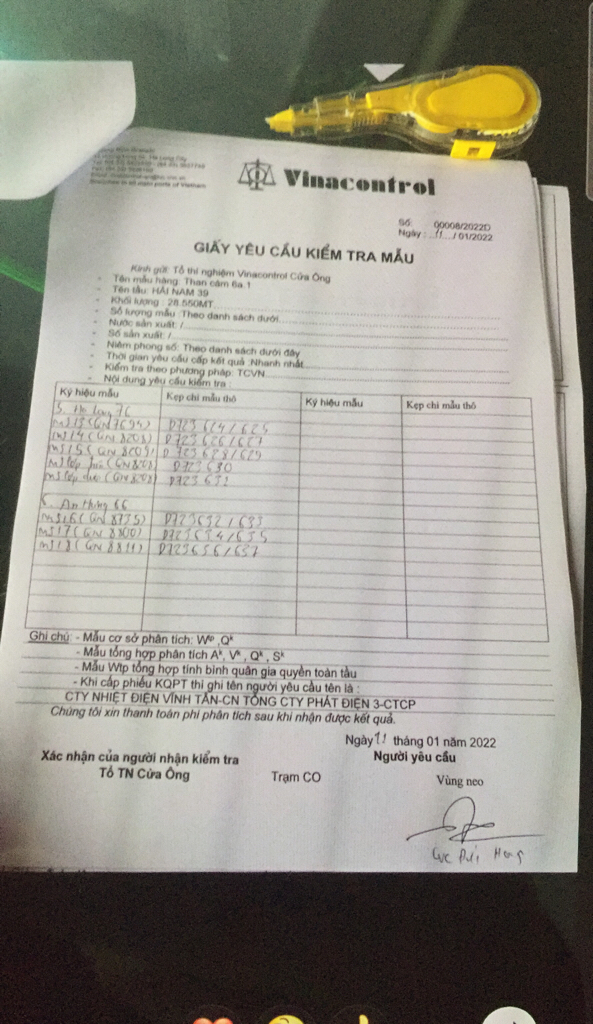 Vinacontrol
Số: 00008/2022D
Ngày: 11 / 01/2022
GIẤY YÊU CẦU KIỂM TRA MẪU
Kính gửi: Tổ thí nghiệm Vinacontrol Cửa Ông
- Tên mẫu hàng: Than cám 6a.1
- Tên tàu: HẢI NAM 39
- Khối lượng : 28.550MT
- Số lượng mẫu :Theo danh sách dưới
- Nước sản xuất: /
- Số sản xuất: /
- Niêm phong số: Theo danh sách dưới đây
- Thời gian yêu cầu cấp kết quả :Nhanh nhất
- Kiểm tra theo phương pháp: TCVN
- Nội dung yêu cầu kiểm tra :
Ký hiệu mẫu Kẹp chì mẫu thô Ký hiệu mẫu Kẹp chì mẫu thô
5. 76
MS13 (GN 7694) D723624/625
MS14 (GN 8208) D723626/627
MS15 (GN 8209) D723628/629
D723630
D723631
6. An Thắng 66
MS16 (GN 8735) D723632/633
MS17 (GN 8800) D723634/635
MS18 (GN 8811) D723636/637
Ghi chú: - Mẫu cơ sở phân tích: Wtp ,Qk
- Mẫu tổng hợp phân tích Ak, Vk , Qk , Sk
- Mẫu Wtp tổng hợp tính bình quân gia quyền toàn tàu
- Khi cấp phiếu KQPT thì ghi tên người yêu cầu tên là :
CTY NHIỆT ĐIỆN VĨNH TÂN-CN TỔNG CTY PHÁT ĐIỆN 3-CTCP
Chúng tôi xin thanh toán phí phân tích sau khi nhận được kết quả.
Ngày 11 tháng 01 năm 2022
Xác nhận của người nhận kiểm tra Người yêu cầu
Tổ TN Cửa Ông Trạm CO Vùng neo